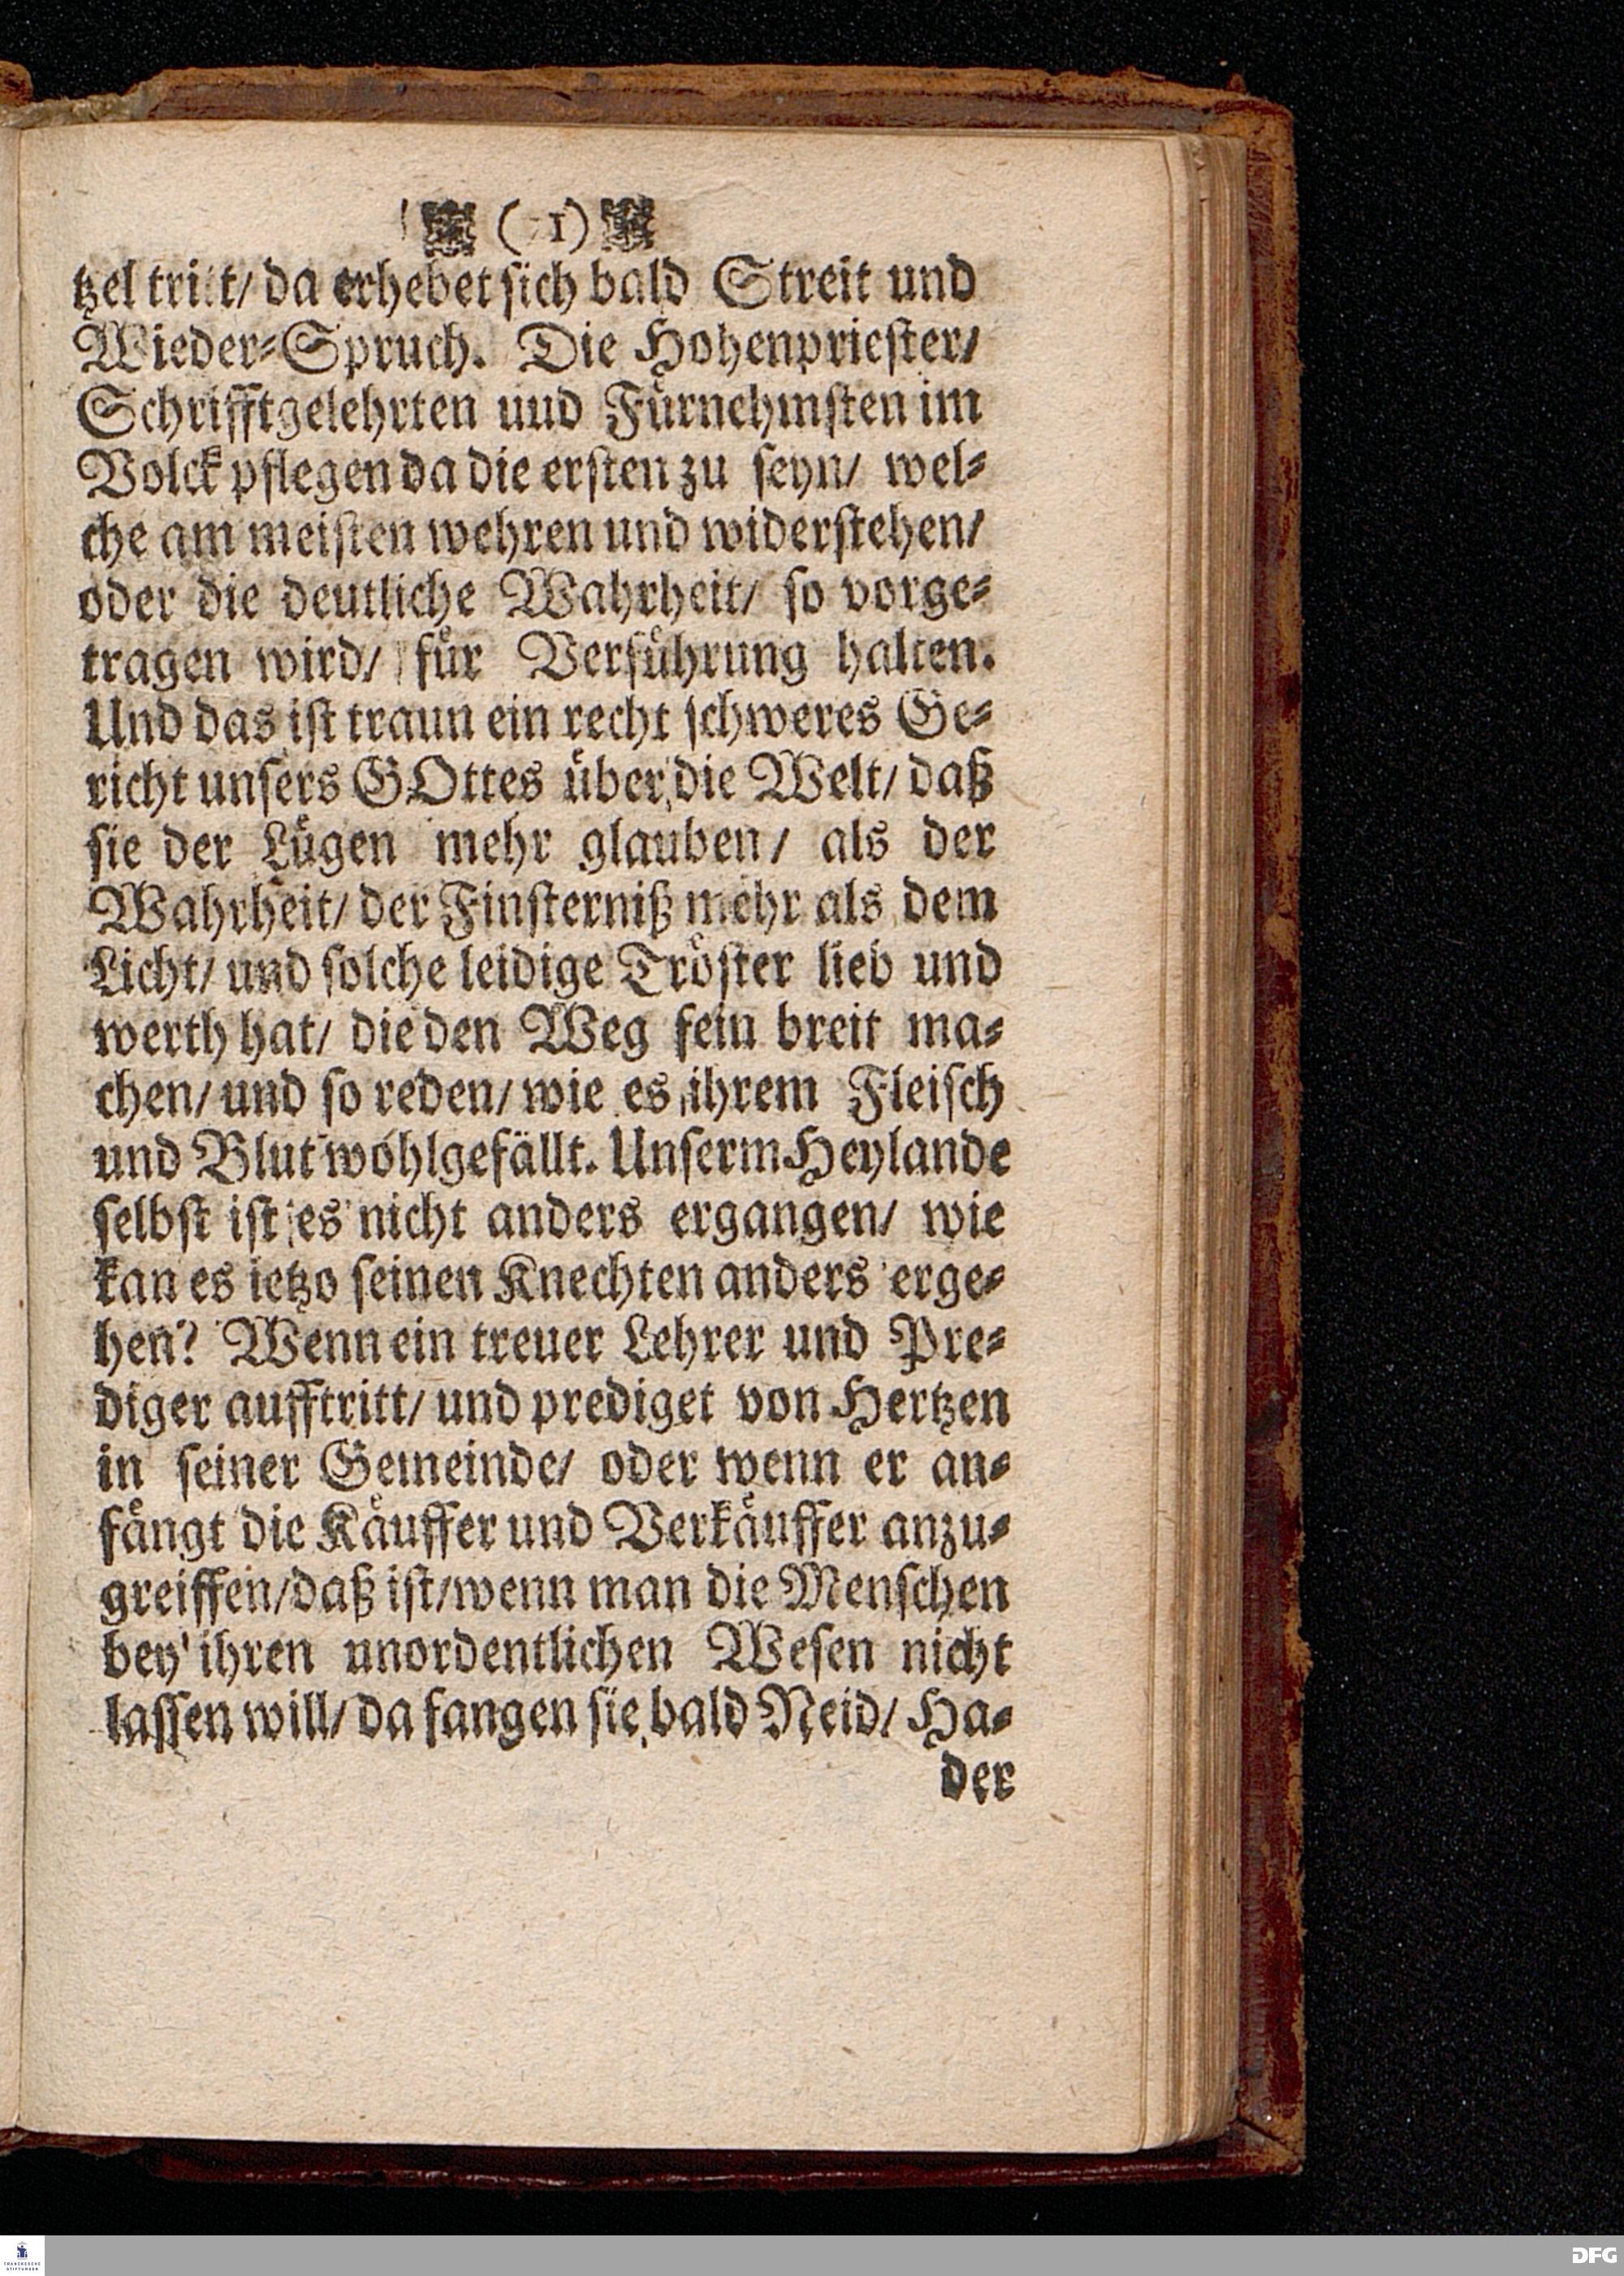 ( 71)
tzel tritt/ da erhebet sich bald Streit und
Wieder-Spruch. Die Hohenpriester/
Schrifftgelehrten uud Fürnehmsten im
Volck pflegen da die ersten zu seyn/ wel-
che am meisten wehren und widerstehen/
oder die deutliche Wahrheit/ so vorge-
tragen wird/ für Verführung halten.
Und das ist traun ein recht schweres Ge-
richt unsers GOttes über die Welt/ daß
sie der Lügen mehr glauben/ als der
Wahrheit/ der Finsterniß mehr als dem
Licht/ und solche leidige Tröster lieb und
werth hat/ die den Weg fein breit ma-
chen/ und so reden/ wie es ihrem Fleisch
und Blut wohlgefällt. Unserm Heylande
selbst ist es nicht anders ergangen/ wie
kan es ietzo seinen Knechten anders erge-
hen? Wenn ein treuer Lehrer und Pre-
diger aufftritt/ und prediget von Hertzen
in seiner Gemeinde/ oder wenn er an-
fängt die Käuffer und Verkäuffer anzu-
greiffen/ daß ist/ wenn man die Menschen
bey ihren unordentlichen Wesen nicht
lassen will/ da fangen sie bald Neid/ Ha-
der
FRANCKESCHE
STIFTUNGEN
DFG